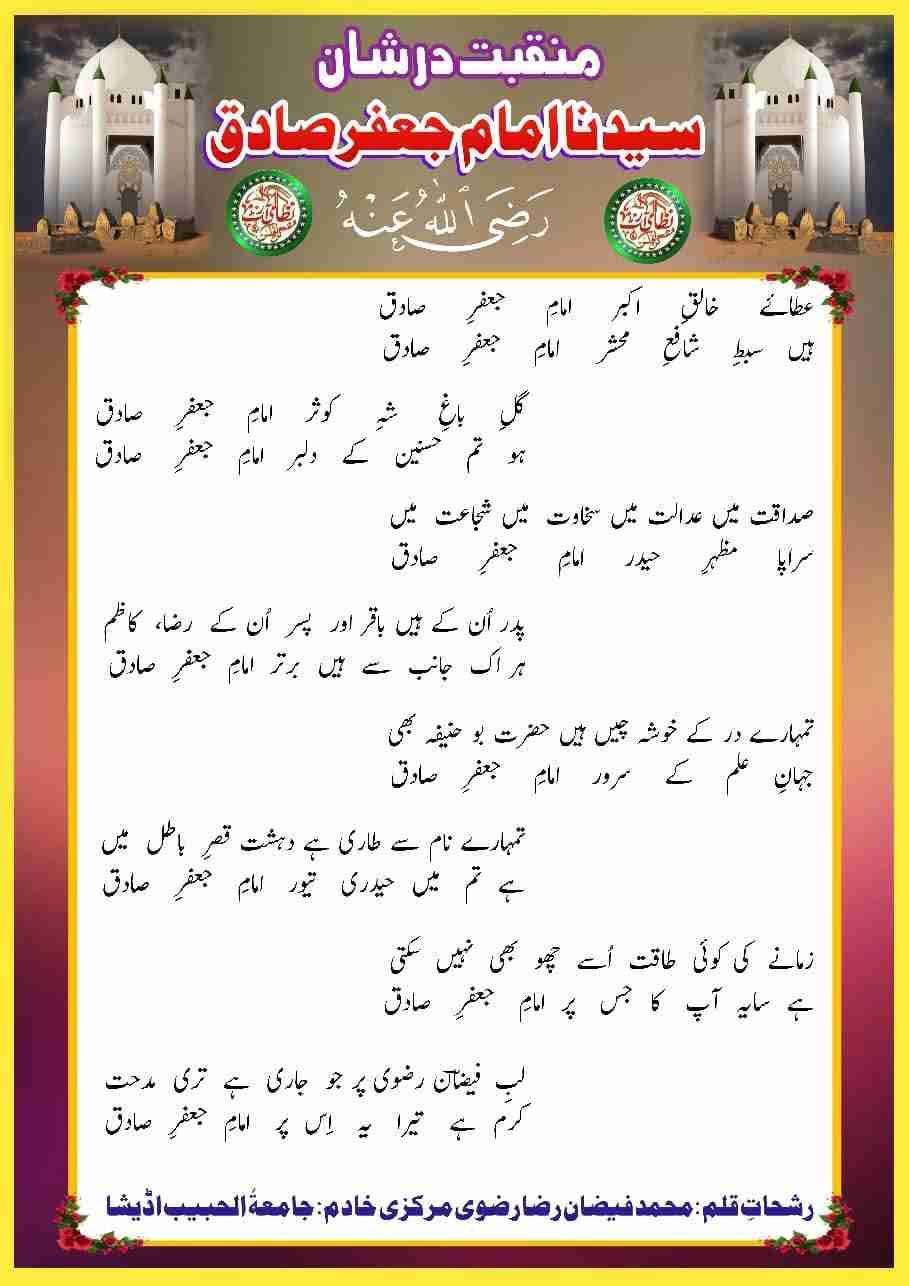 منقبت در شان
سیدنا امام جعفر صادق
رَضِيَ ٱللَّهُ عَنْهُ
عطائے خالقِ اکبر امامِ جعفرِ صادق
ہیں سبطِ شافعِ محشر امامِ جعفرِ صادق
گلِ باغِ شہِ کوثر امامِ جعفرِ صادق
ہو تم حسنین کے دلبر امامِ جعفرِ صادق
صداقت میں عدالت میں سخاوت میں شجاعت میں
سراپا مظہرِ حیدر امامِ جعفرِ صادق
پدر اُن کے ہیں باقر اور پسر اُن کے رضا، کاظم
ہر اک جانب سے ہیں برتر امامِ جعفرِ صادق
تمہارے در کے خوشہ چیں ہیں حضرت بو حنیفہ بھی
جہانِ علم کے سرور امامِ جعفرِ صادق
تمہارے نام سے طاری ہے دہشت قصرِ باطل میں
ہے تم میں حیدری تیور امامِ جعفرِ صادق
زمانے کی کوئی طاقت اُسے چھو بھی نہیں سکتی
ہے سایہ آپ کا جس پر امامِ جعفرِ صادق
لبِ فیضانؔ رضوی پر جو جاری ہے تری مدحت
کرم ہے تیرا یہ اِس پر امامِ جعفرِ صادق
رشحاتِ قلم: محمد فیضان رضا رضوی مرکزی خادم: جامعۃُ الحبیب اڈیشا